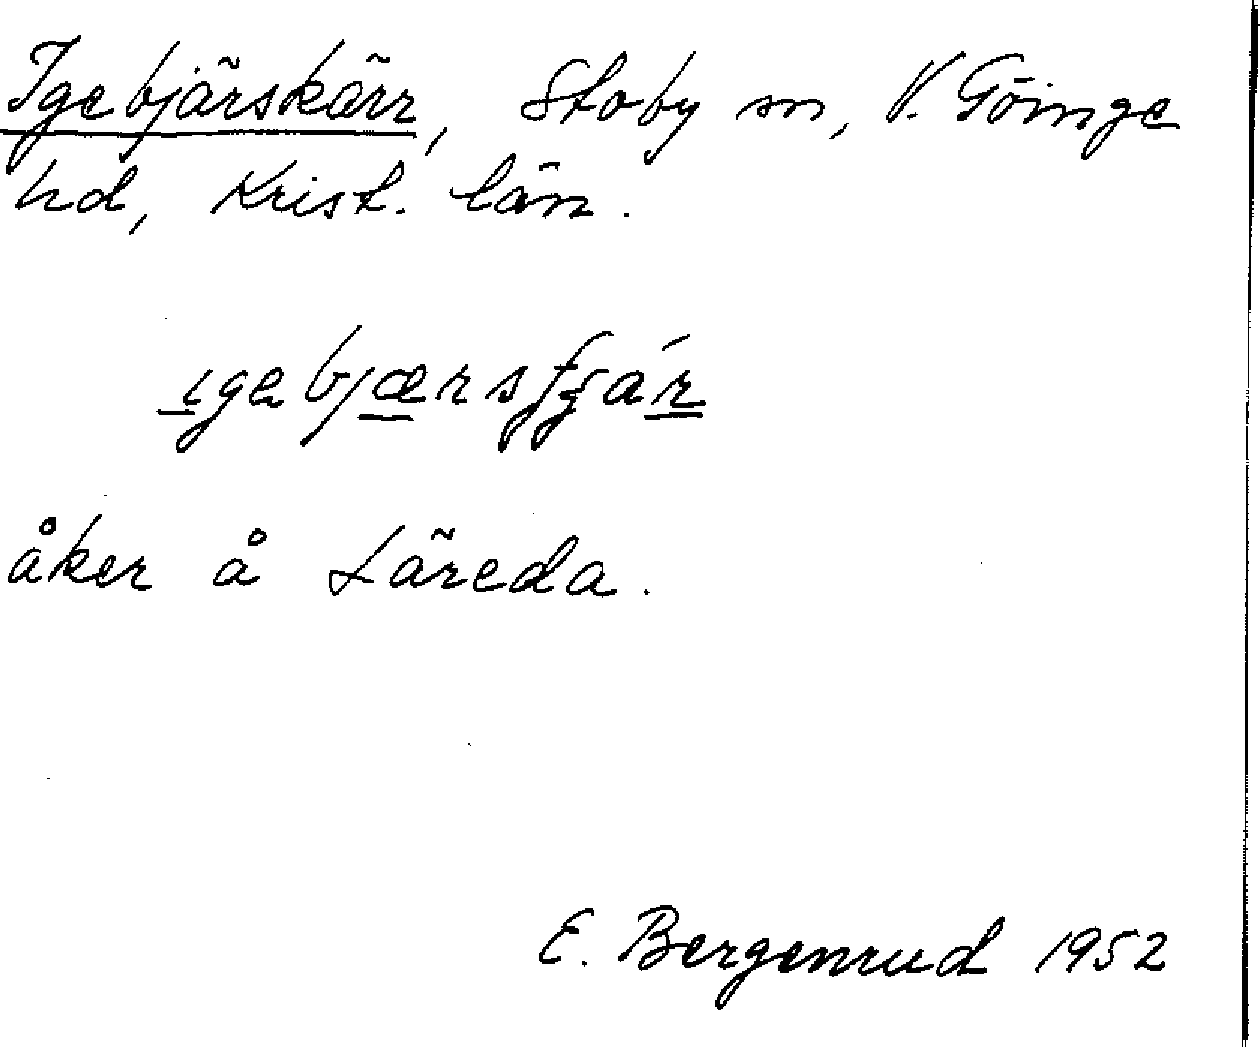 Igebjärskärr, Stoby sn, V. Göinge
hd, Krist. län.
åker å Läreda.
E. Bergenrud 1952